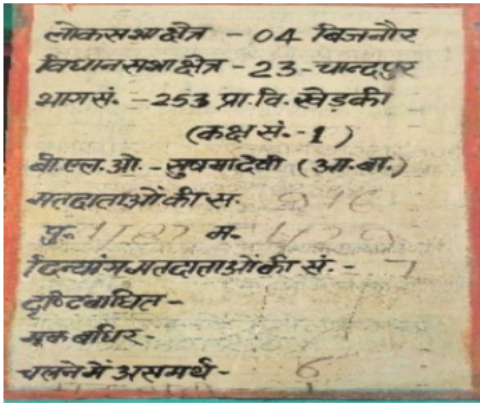 लोकसभा क्षेत्र - 04 बिजनौर
विधानसभा क्षेत्र - 23 - चान्दपुर
भाग सं. - 253 प्रा. वि. खेड़की
(कक्ष सं. - 1)
बी.एल.ओ. - सुषमा देवी (आ.बा.)
मतदाताओं की स.
पु. म.
दिव्यांग मतदाताओं की सं. - 7
दृष्टिबाधित -
मूक बधिर -
चलने में असमर्थ - 6